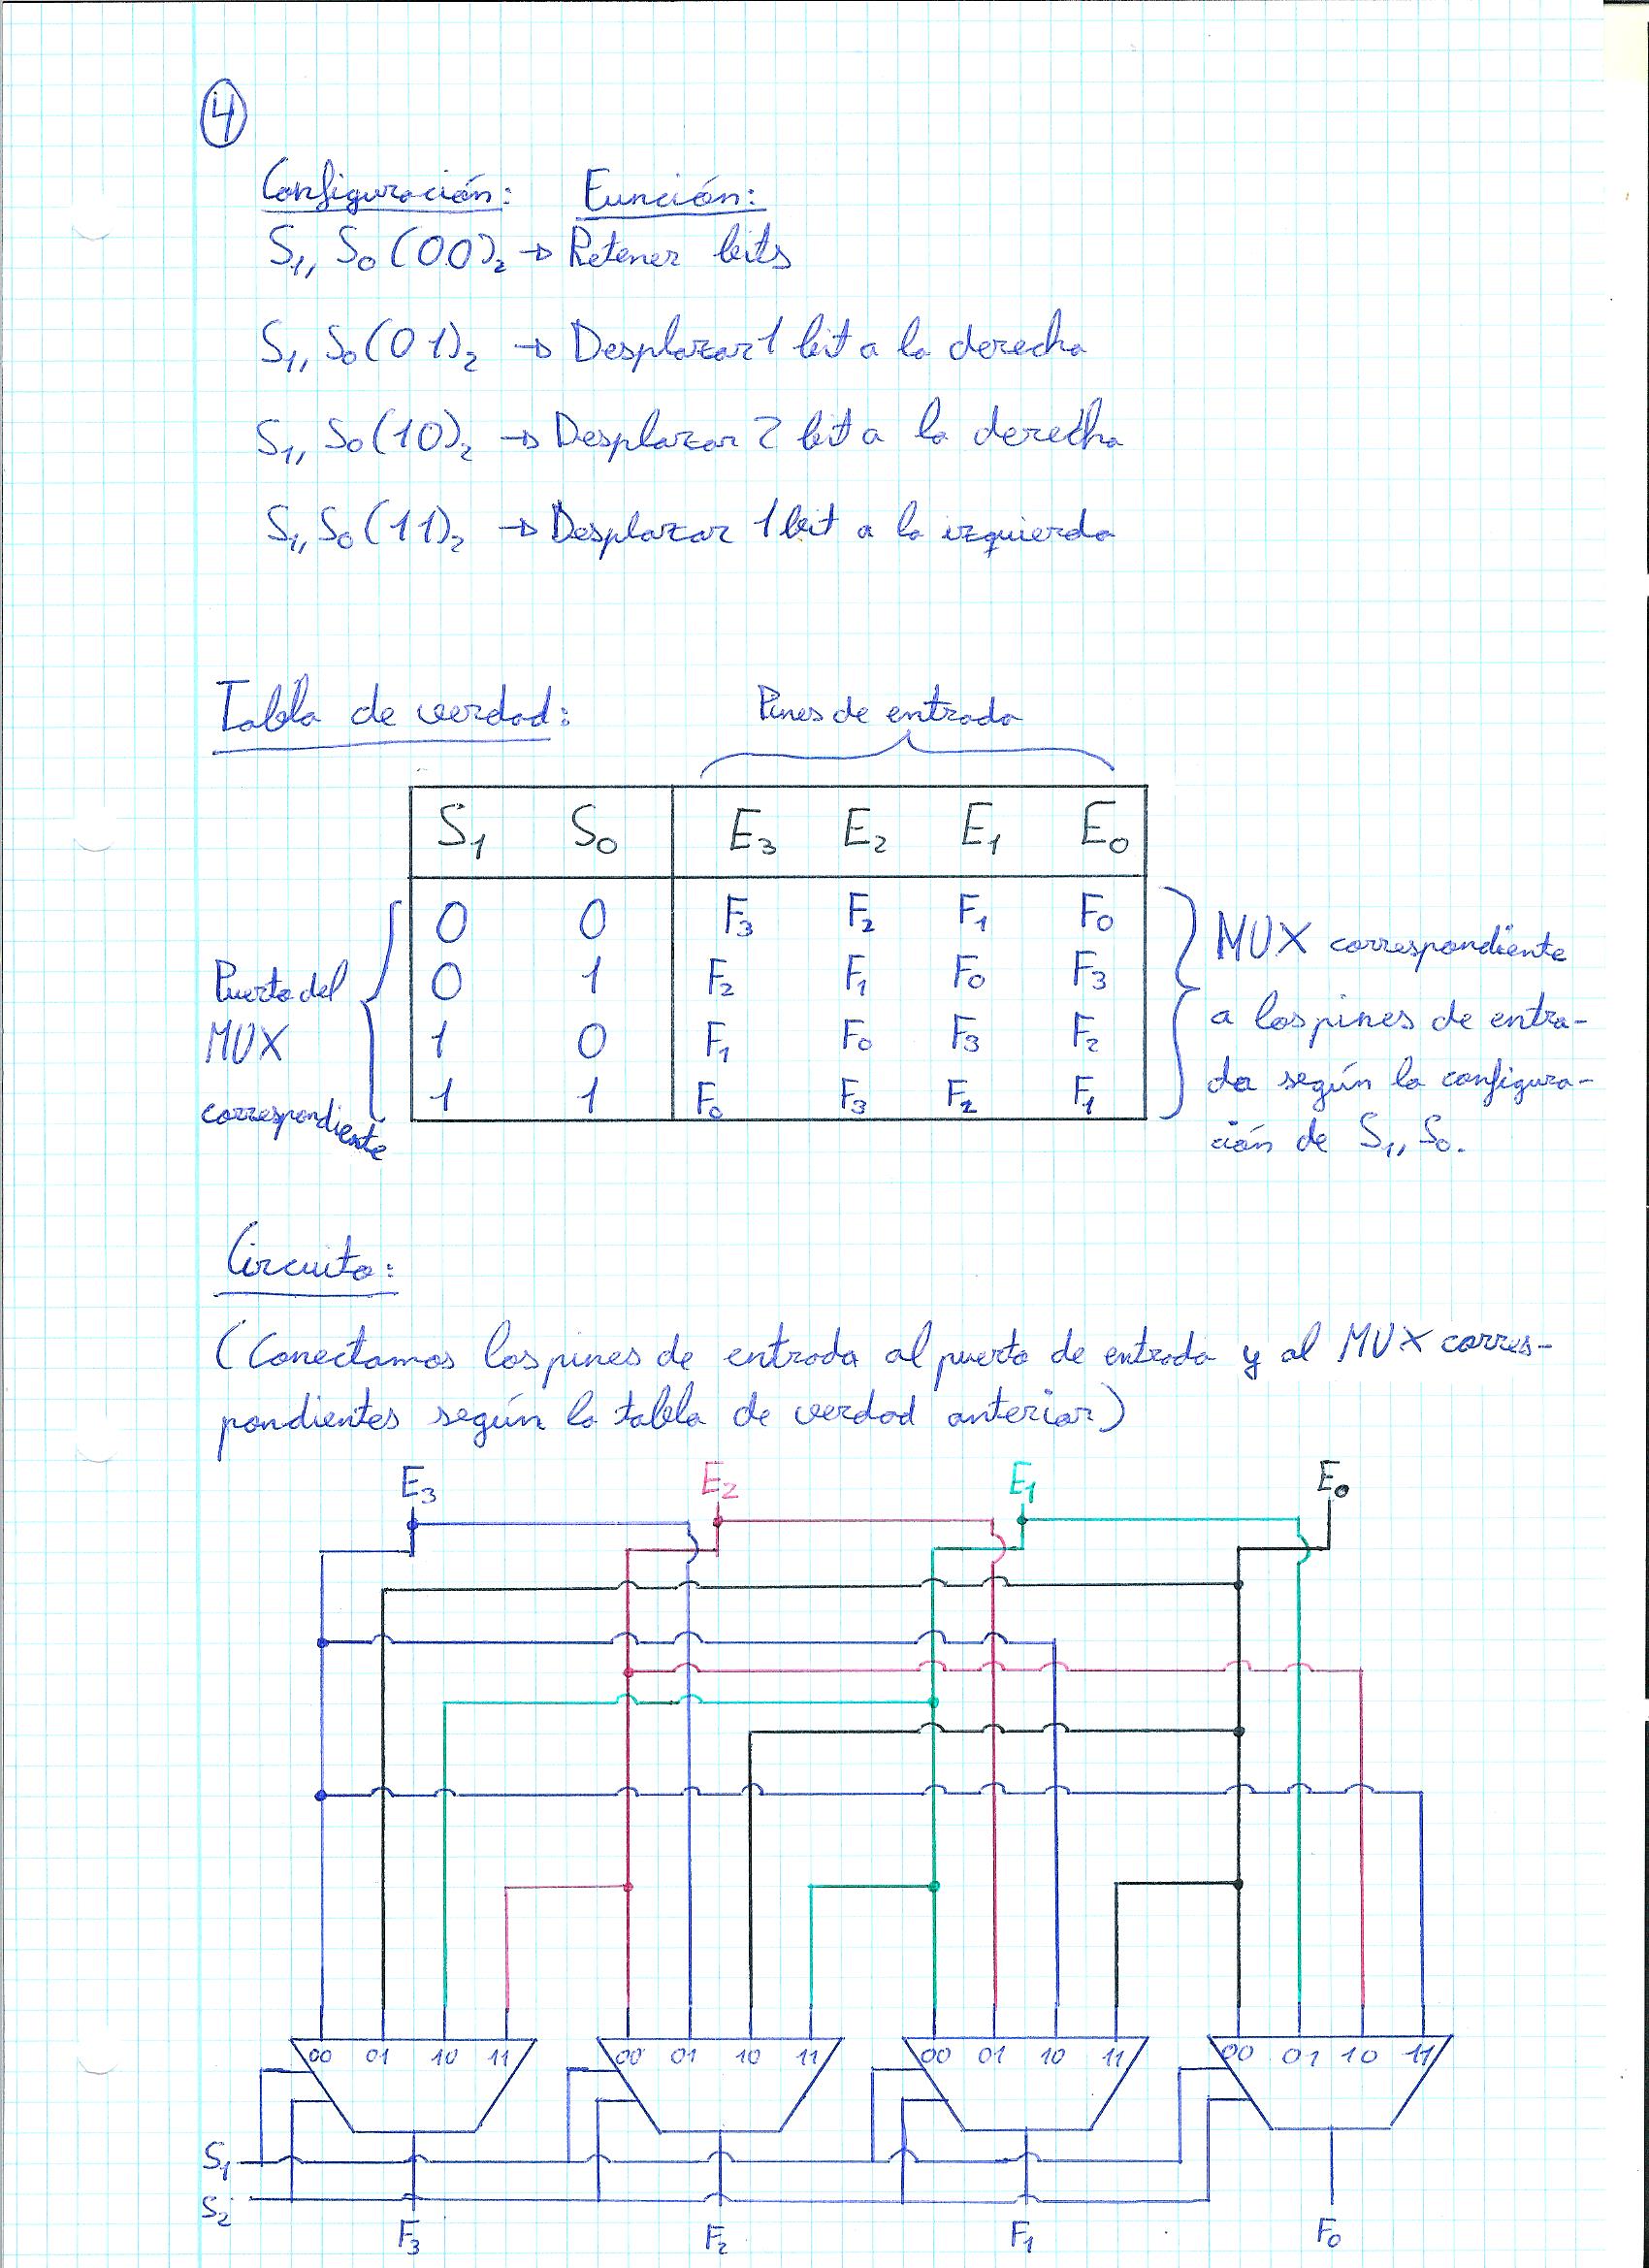 4
Configuración: Función:
S₁, S₀ (00)₂ → Retener bits
S₁, S₀ (01)₂ → Desplazar 1 bit a la derecha
S₁, S₀ (10)₂ → Desplazar 2 bit a la derecha
S₁, S₀ (11)₂ → Desplazar 1 bit a la izquierda
Tabla de verdad: Pines de entrada
S₁ S₀ E₃ E₂ E₁ E₀
0 0 F₃ F₂ F₁ F₀
0 1 F₂ F₁ F₀ F₃
1 0 F₁ F₀ F₃ F₂
1 1 F₀ F₃ F₂ F₁
Puerto del
MUX
correspondiente
MUX correspondiente
a los pines de entra-
da según la configura-
ción de S₁, S₀.
Circuito:
(Conectamos los pines de entrada al puerto de entrada y al MUX corres-
pondientes según la tabla de verdad anterior)
E₃ E₂ E₁ E₀
00 01 10 11 00 01 10 11 00 01 10 11 00 01 10 11
S₁
S₂
F₃ F₂ F₁ F₀